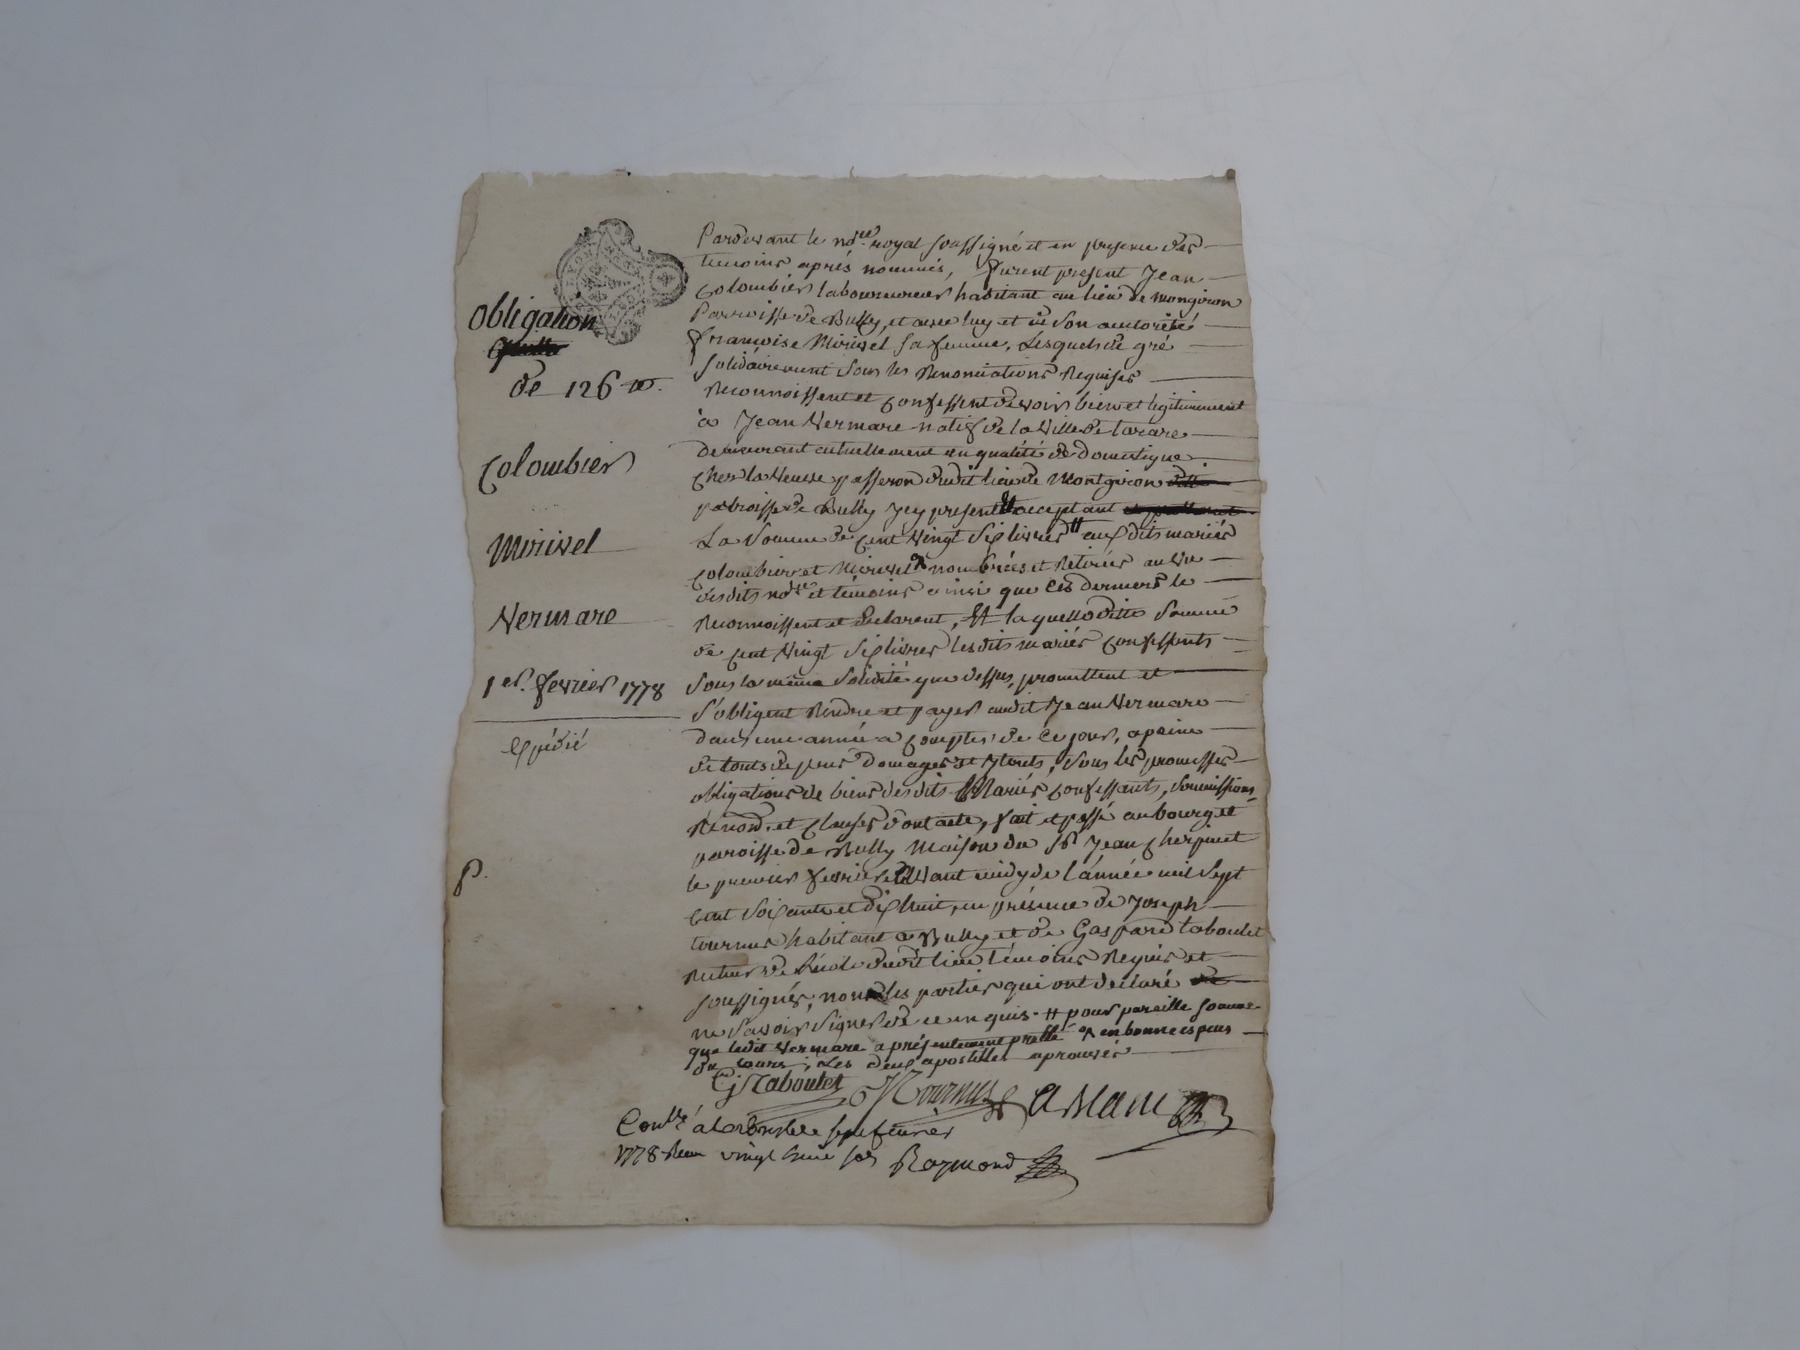 Pardevant le no.re royal soussigné et en presence des
temoins aprés nommés, furent present Jean
Colombier laboureur habitant au lieu de mongiron
Parroisse de Bully, et avec luy et de son authorité
françoise Morivel sa femme, Lesquels de gré
solidairement sous les Renonciations Requises
Reconnoissent et confessent devoir bien et legitimement
à Jean Vermare natif de la Ville de tarare
demeurant actuellement en qualité de domestique
chez la Veuve passeron dudit lieu de Montgiron
paroisse de Bully Jcy present et acceptant
La Somme de cent Vingt Six livres # auxdits mariés
Colombier et Morivel nombrées et Retirées au Vu
desdits no.re et témoins ainsi que Ces derniers le
Reconnoissent et declarent, Et la quelle ditte Somme
de cent Vingt Six livres lesdits mariés confessants
sous la même Solidité que dessus, promettent et
s'obligent Rendre et payer audit Jean Vermare
dans une année a compter de Ce jour, a peine
de touts depens domages et Jterets, sous les promesses
obligations de biens desdits Mariés confessants, soumissions
Renon. et Clauses dont acte, fait et passé au bourg et
paroisse de Bully Maison du Sr. Jean Cherpinet
le premier fevrier avant midy de l'année mil Sept
Cent Soixante et dix huit, en présence de Joseph
tournus habitant a Bully et de Gaspard taboulet
Recteur de L'école dudit lieu témoins Requis et
soussignés, non les parties qui ont declaré
ne Savoir Signer de ce enquis. # pour pareille somme
que ledit Vermare a présentement pretté en bonnes especes
du cours, Les deux apostilles aprouvés
Obligation
de 126 tt.
Colombier
Morivel
Vermare
1er. fevrier 1778
Expédié
p.
G Taboulet J Tournus
Conllé à sept fevrier
1778 Reçu vingt huit sols Raymond